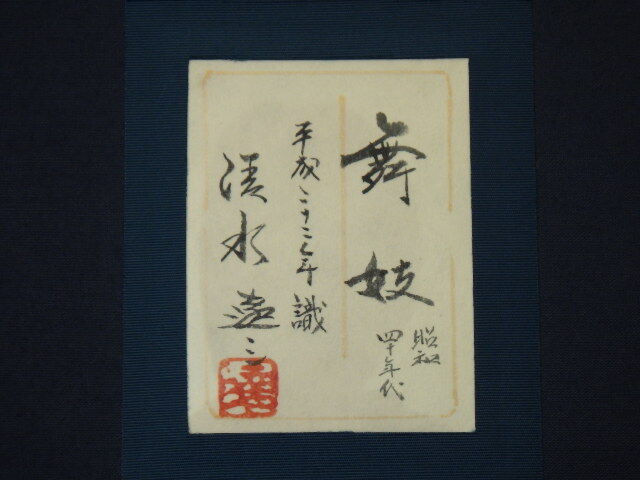 舞妓
昭和
四十年代
平成二十二年識
清水達三